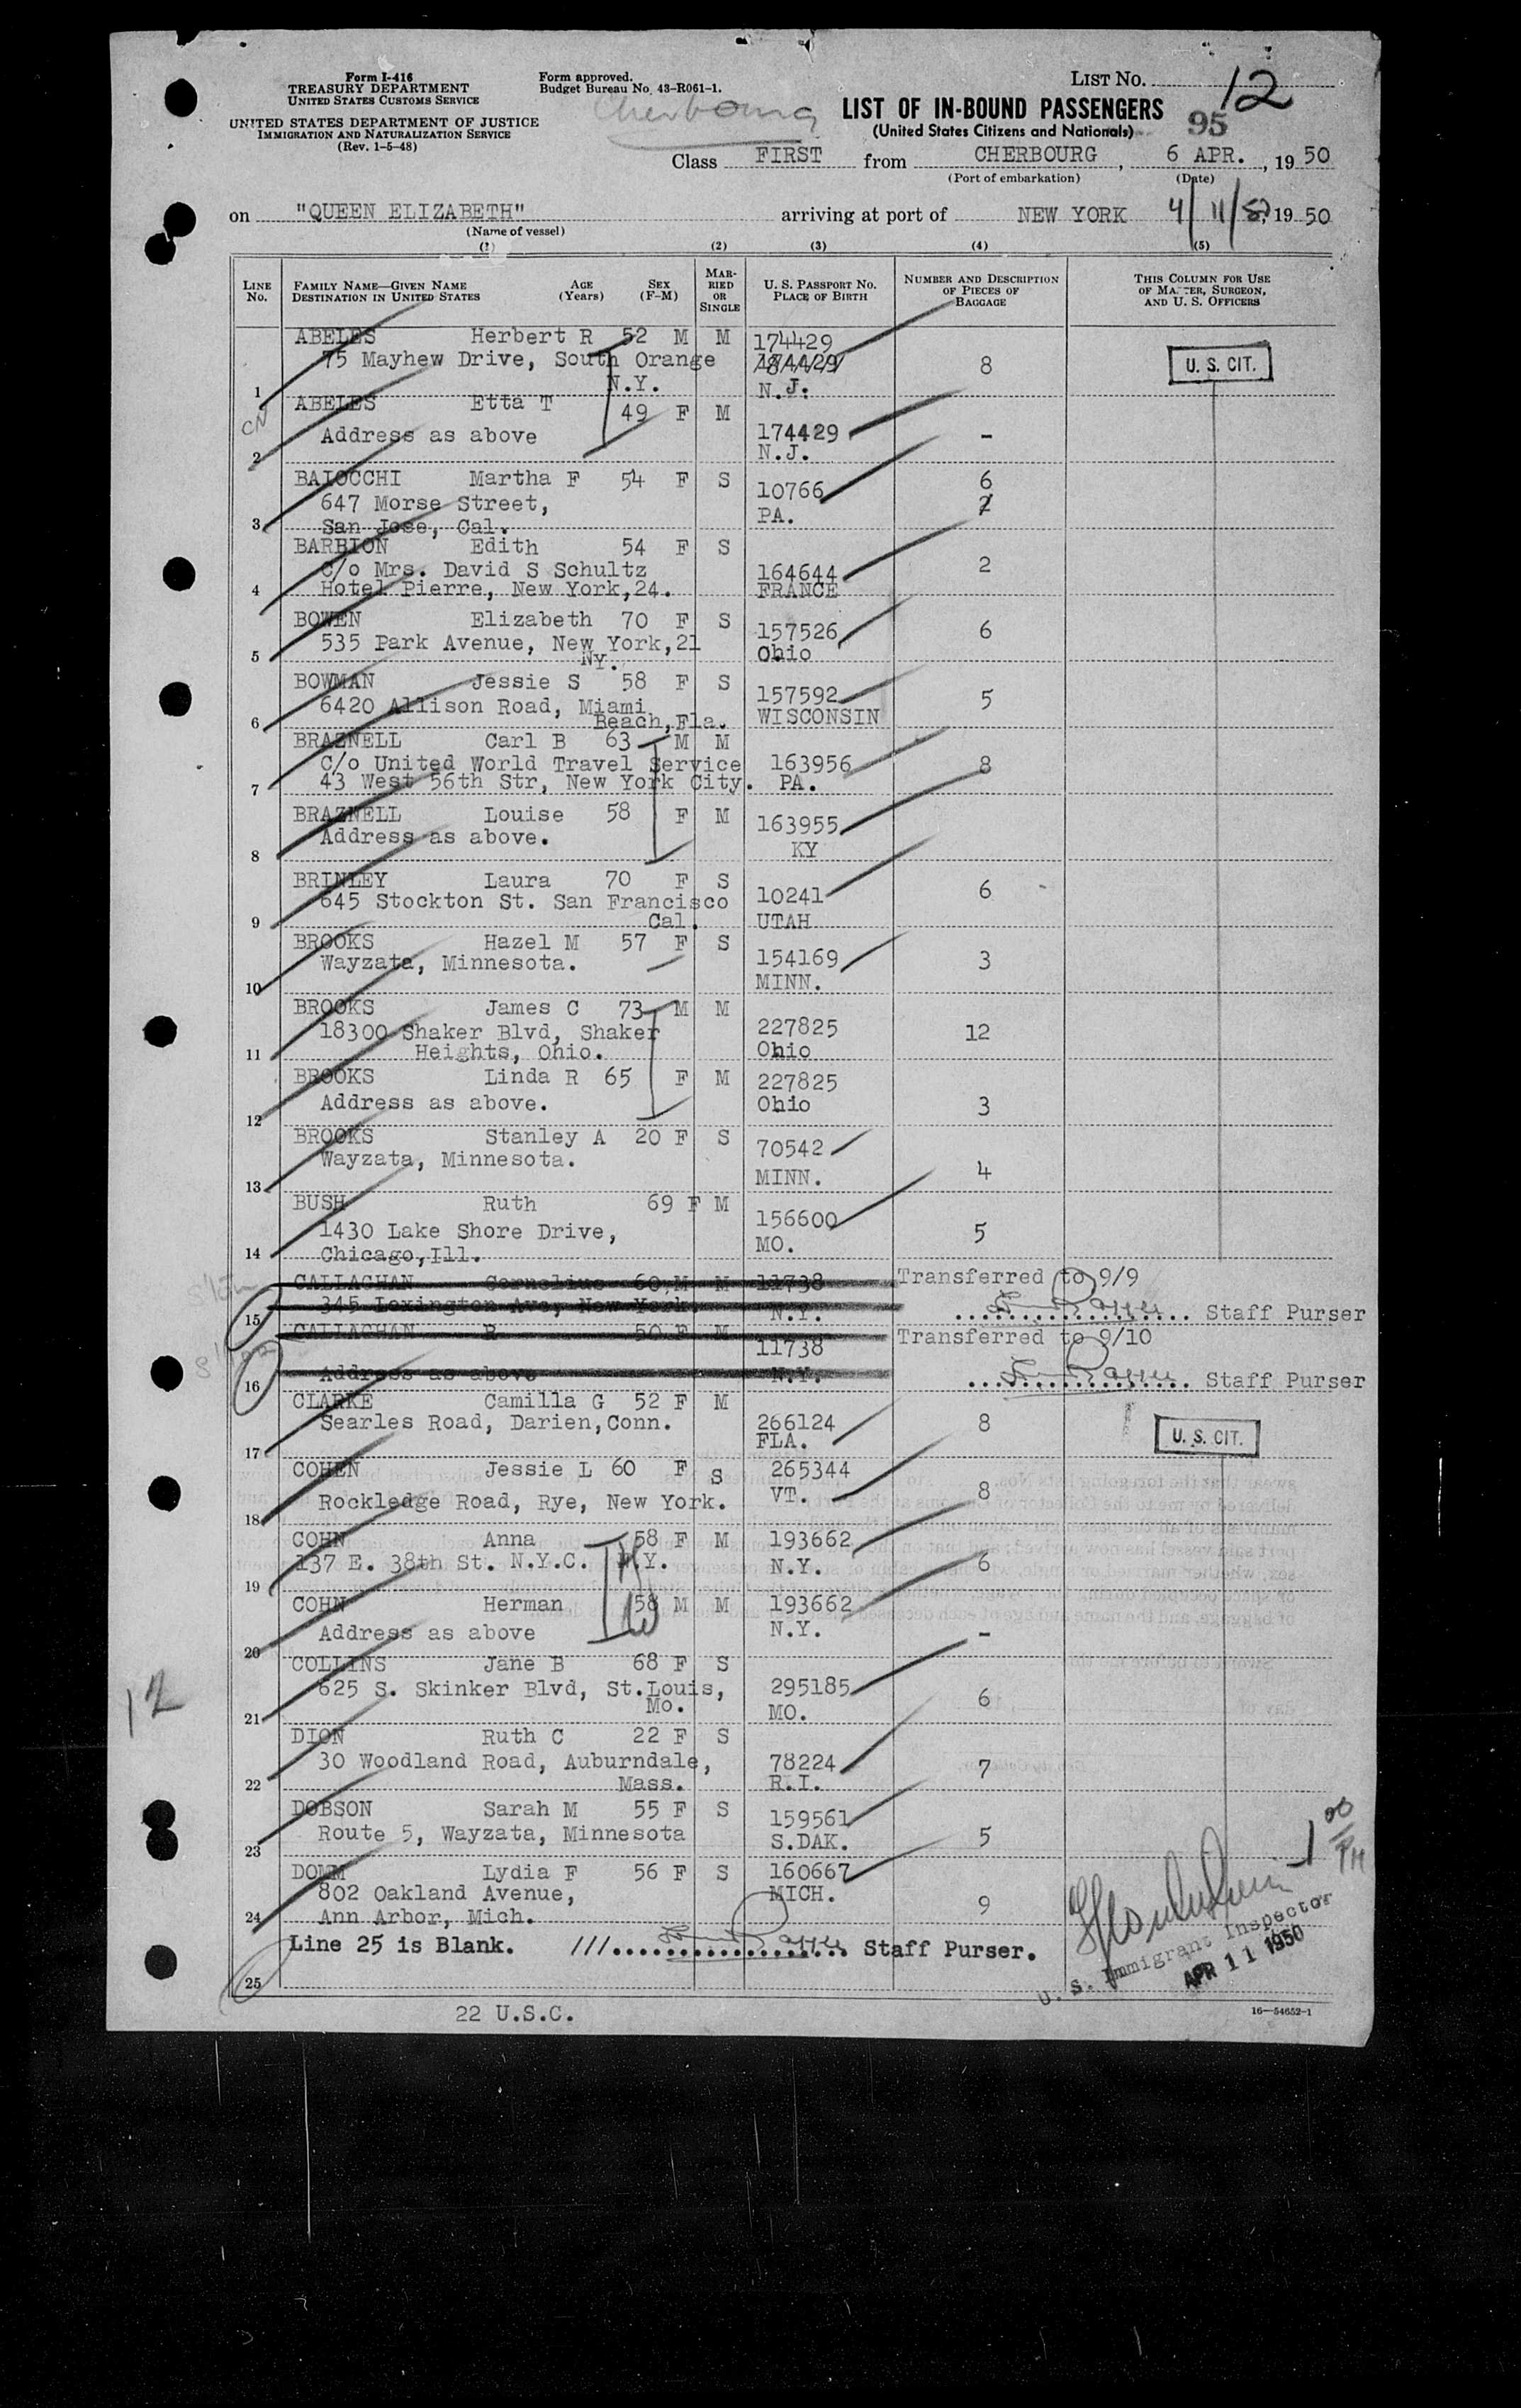 Form I-416
TREASURY DEPARTMENT
UNITED STATES CUSTOMS SERVICE
UNITED STATES DEPARTMENT OF JUSTICE
IMMIGRATION AND NATURALIZATION SERVICE
(Rev. 1-5-48)
Form approved.
Budget Bureau No. 43-R061-1.
Cherbourg
LIST NO. 12
LIST OF IN-BOUND PASSENGERS
(United States Citizens and Nationals)
95
Class FIRST from CHERBOURG, 6 APR., 19 50
(Port of embarkation) (Date)
on "QUEEN ELIZABETH" arriving at port of NEW YORK 4/11/50, 19 50
(Name of vessel)
(1) (2) (3) (4) (5)
LINE No. FAMILY NAME—GIVEN NAME DESTINATION IN UNITED STATES AGE (Years) SEX (F-M) MARRIED OR SINGLE U. S. PASSPORT NO. PLACE OF BIRTH NUMBER AND DESCRIPTION OF PIECES OF BAGGAGE THIS COLUMN FOR USE OF MASTER, SURGEON, AND U. S. OFFICERS
ABELES Herbert R 52 M M 174429
75 Mayhew Drive, South Orange 174429 8 U. S. CIT.
1 N.Y. N.J.
CN
ABELES Etta T 49 F M
Address as above 174429 -
2 N.J.
BAIOCCHI Martha F 54 F S 6
647 Morse Street, 10766 2
3 San Jose, Cal. PA.
BARBION Edith 54 F S
C/o Mrs. David S Schultz 164644 2
4 Hotel Pierre, New York,24. FRANCE
BOWEN Elizabeth 70 F S
535 Park Avenue, New York,21 157526 6
5 NY. Ohio
BOWMAN Jessie S 58 F S
6420 Allison Road, Miami 157592 5
6 Beach,Fla. WISCONSIN
BRAZNELL Carl B 63 M M
C/o United World Travel Service 163956 8
7 43 West 56th Str, New York City. PA.
BRAZNELL Louise 58 F M
Address as above. 163955
8 KY
BRINLEY Laura 70 F S
645 Stockton St. San Francisco 10241 6
9 Cal. UTAH
BROOKS Hazel M 57 F S
Wayzata, Minnesota. 154169 3
10 MINN.
BROOKS James C 73 M M
18300 Shaker Blvd, Shaker 227825 12
11 Heights, Ohio. Ohio
BROOKS Linda R 65 F M 227825
Address as above. Ohio 3
12
BROOKS Stanley A 20 F S 70542
Wayzata, Minnesota. MINN. 4
13
BUSH Ruth 69 F M
1430 Lake Shore Drive, 156600 5
14 Chicago,Ill. MO.
CALLAGHAN Cornelius 60 M M 11738 Transferred to 9/9
15 345 Lexington Ave, New York. N.Y. Staff Purser
CALLAGHAN R 50 F M 11738 Transferred to 9/10
16 Address as above N.Y. Staff Purser
CLARKE Camilla G 52 F M
Searles Road, Darien,Conn. 266124 8 U. S. CIT.
17 FLA.
COHEN Jessie L 60 F S 265344
Rockledge Road, Rye, New York. VT. 8
18
COHN Anna 58 F M 193662
137 E. 38th St. N.Y.C. N.Y. N.Y. 6
19
COHN Herman 58 M M 193662
Address as above N.Y. -
20
COLLINS Jane B 68 F S
625 S. Skinker Blvd, St.Louis, 295185 6
21 Mo. MO.
12
DION Ruth C 22 F S
30 Woodland Road, Auburndale, 78224 7
22 Mass. R.I.
DOBSON Sarah M 55 F S 159561
Route 5, Wayzata, Minnesota S.DAK. 5
23
DOMM Lydia F 56 F S 160667
802 Oakland Avenue, MICH. 9
24 Ann Arbor, Mich.
Line 25 is Blank. /// Staff Purser.
25
1 00 PM
U. S. Immigrant Inspector
APR 11 1950
22 U.S.C.
16—54652-1